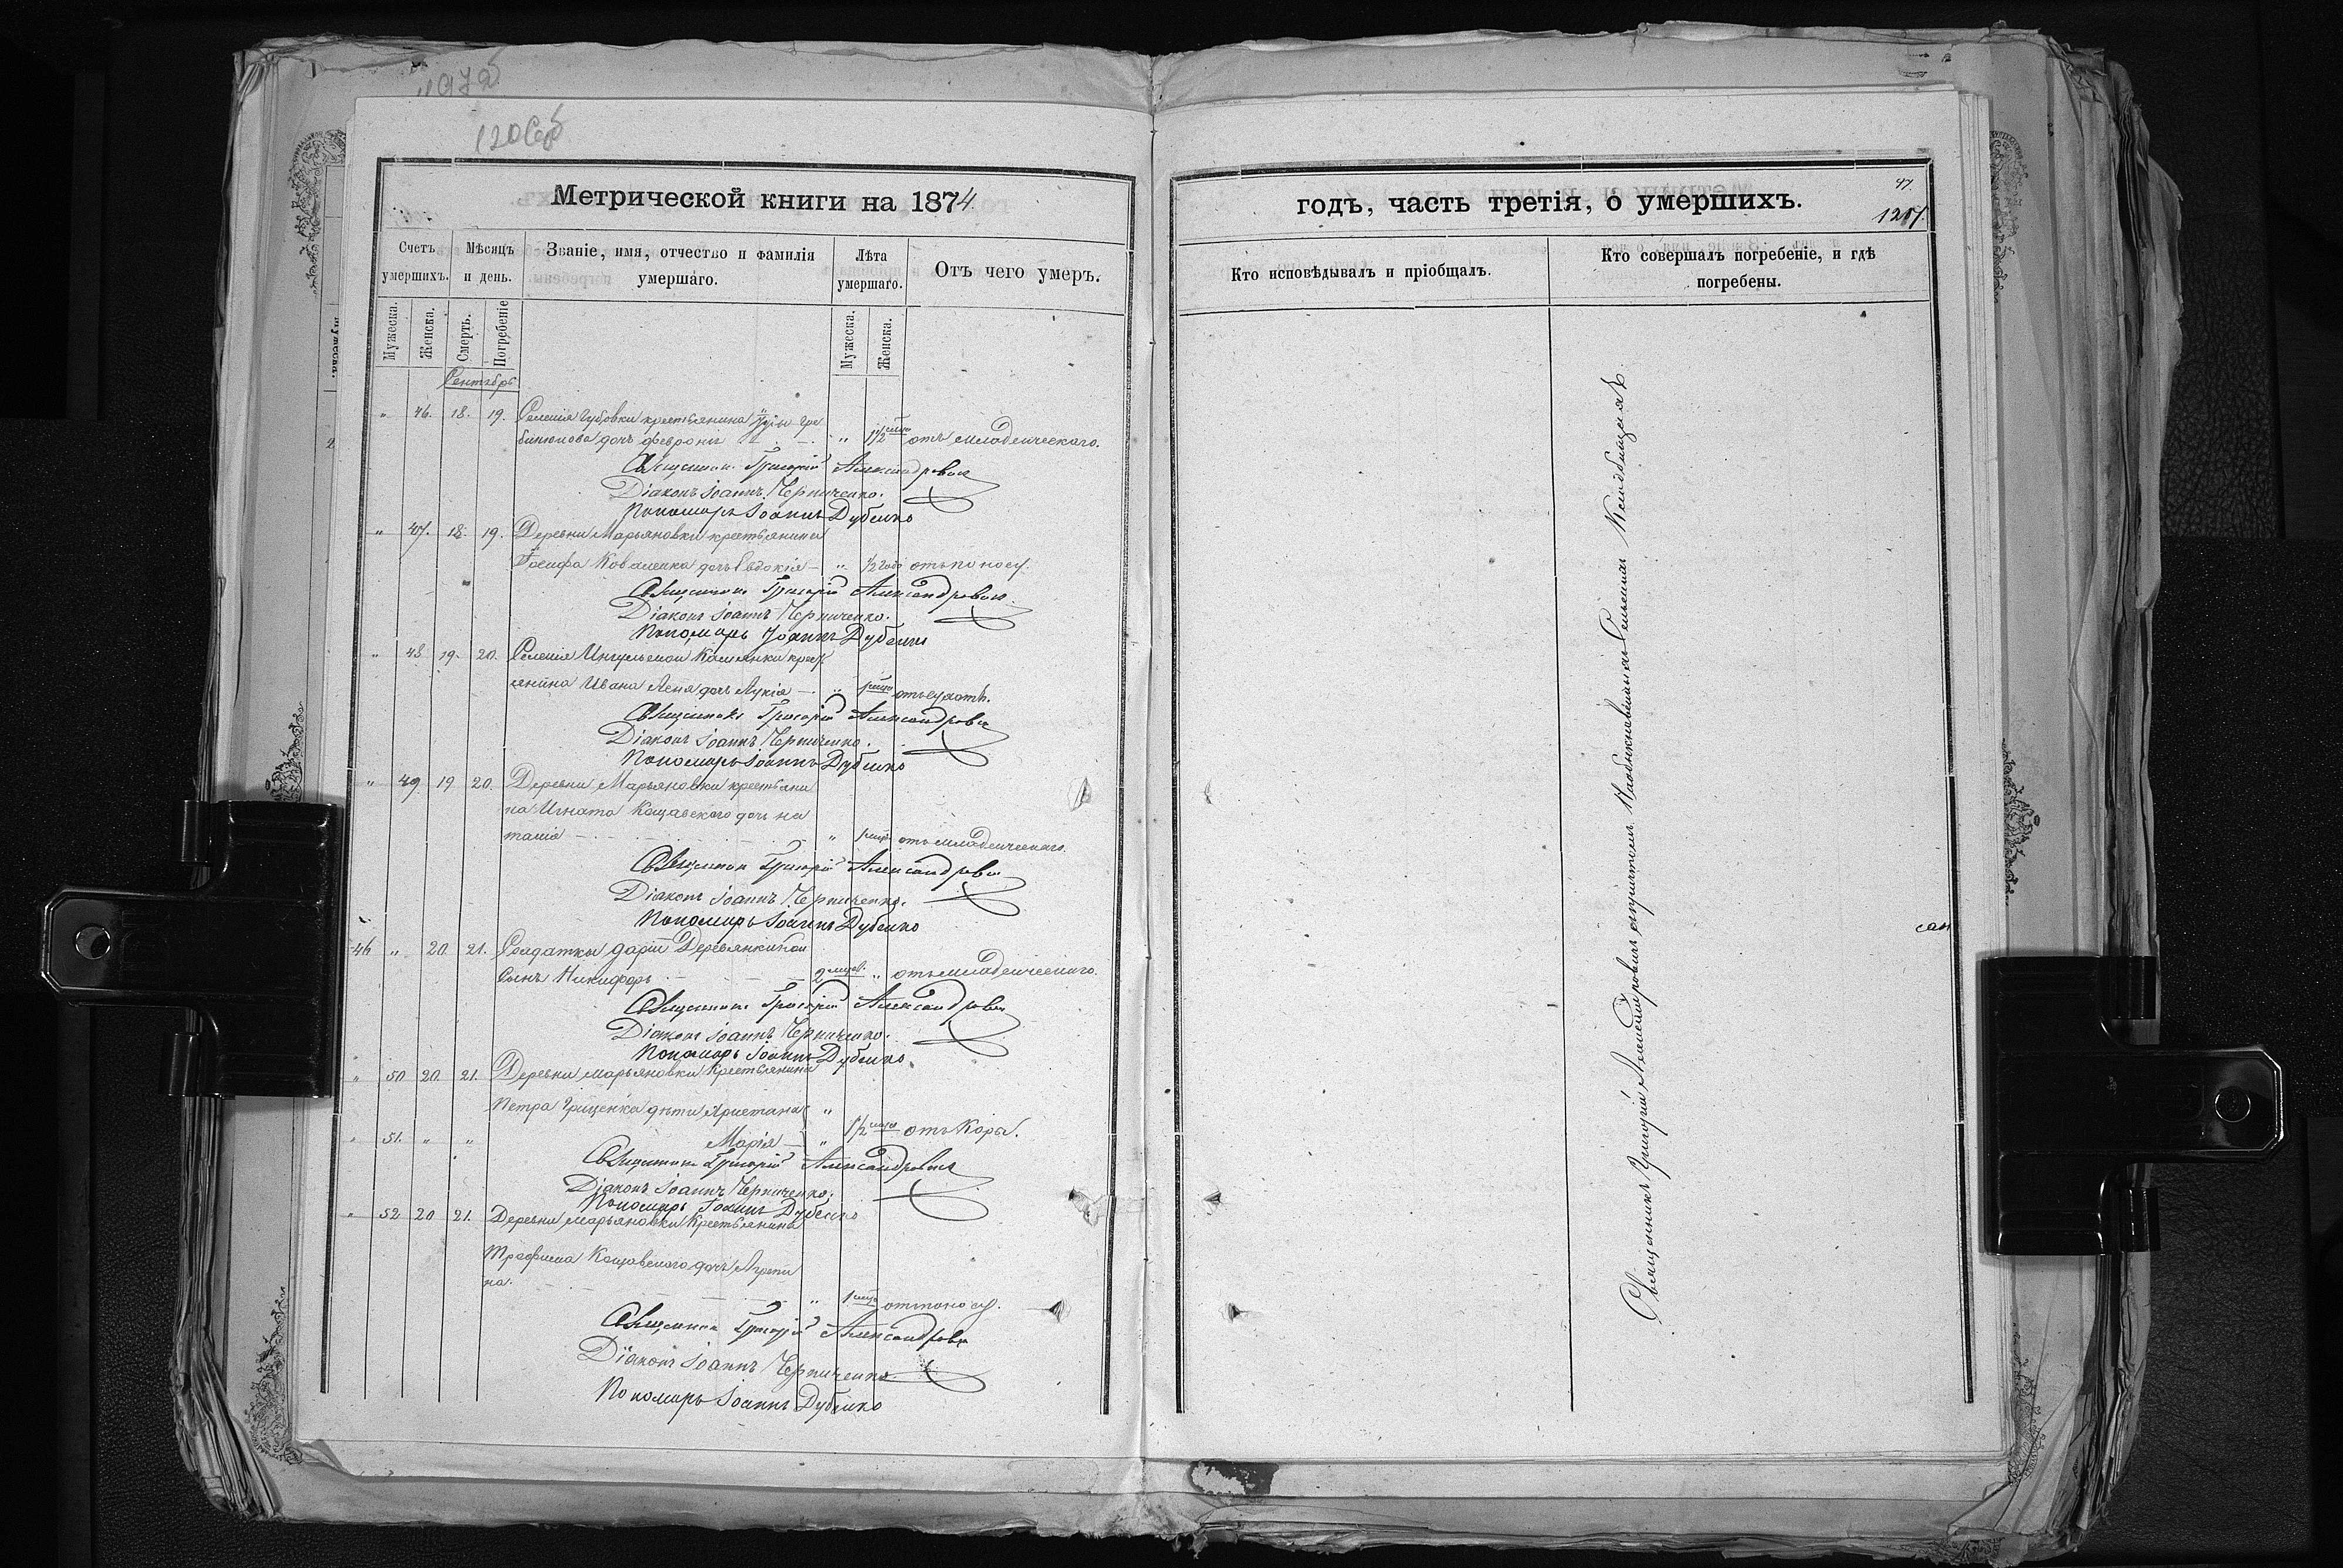 120
Метрической книги на 1874
годъ, часть третія, о умершихъ.
47
Счетъ умершихъ.
Мѣсяцъ и день.
Званіе, имя, отчество и фамилія умершаго.
Лѣта умершаго.
Отъ чего умеръ.
Кто исповѣдывалъ и пріобщалъ.
Кто совершалъ погребеніе, и гдѣ погребены.
Мужеска. Женска. Смерть. Погребеніе
Мужеска. Женска.
Сентябрь
" 46. 18. 19. Селенія Губовки крестьянина
дочь Феврони " 1/2 отъ младенческаго.
Священникъ Григорій Александровъ
Діаконъ Іоаннъ Черниченко.
Пономарь Іоаннъ Дубенко
" 47. 18. 19. Деревни Марьяновки крестьянина
Іосифа Коваленка дочь Евдокія — " 1/2 года отъ поносу.
Священникъ Григорій Александровъ
Діаконъ Іоаннъ Черниченко.
Пономарь Іоаннъ Дубенко
" 48 19. 20. Селенія Ингульской Каменки крест
янина Ивана дочь Лукія — " 1 отъ сухотъ.
Священникъ Григорій Александровъ
Діаконъ Іоаннъ Черниченко.
Пономарь Іоаннъ Дубенко
" 49 19 20. Деревни Марьяновки крестьяни
на Игната Кащавского дочь На
талія — " 1 отъ младенческаго.
Священникъ Григорій Александровъ
Діаконъ Іоаннъ Черниченко.
Пономарь Іоаннъ Дубенко
46 " 20 21. Солдатки Даріи Деревянкиной
сынъ Никифоръ — 2 " отъ младенческаго.
Священникъ Григорій Александровъ
Діаконъ Іоаннъ Черниченко.
Пономарь Іоаннъ Дубенко
" 50 20 21. Деревни Марьяновки крестьянина
Петра Гриценка дѣти Христина "
" 51. " " Марія — " 1/2 отъ кори.
Священникъ Григорій Александровъ
Діаконъ Іоаннъ Черниченко.
Пономарь Іоаннъ Дубенко
" 52 20 21. Деревни Марьяновки крестьянина
Трофима Кащавского дочь Агрипи
на. — " 1 отъ поносу.
Священникъ Григорій Александровъ
Діаконъ Іоаннъ Черниченко
Пономарь Іоаннъ Дубенко
Священникъ Григорій Александровичъ на Сельскомъ Кладбищѣ